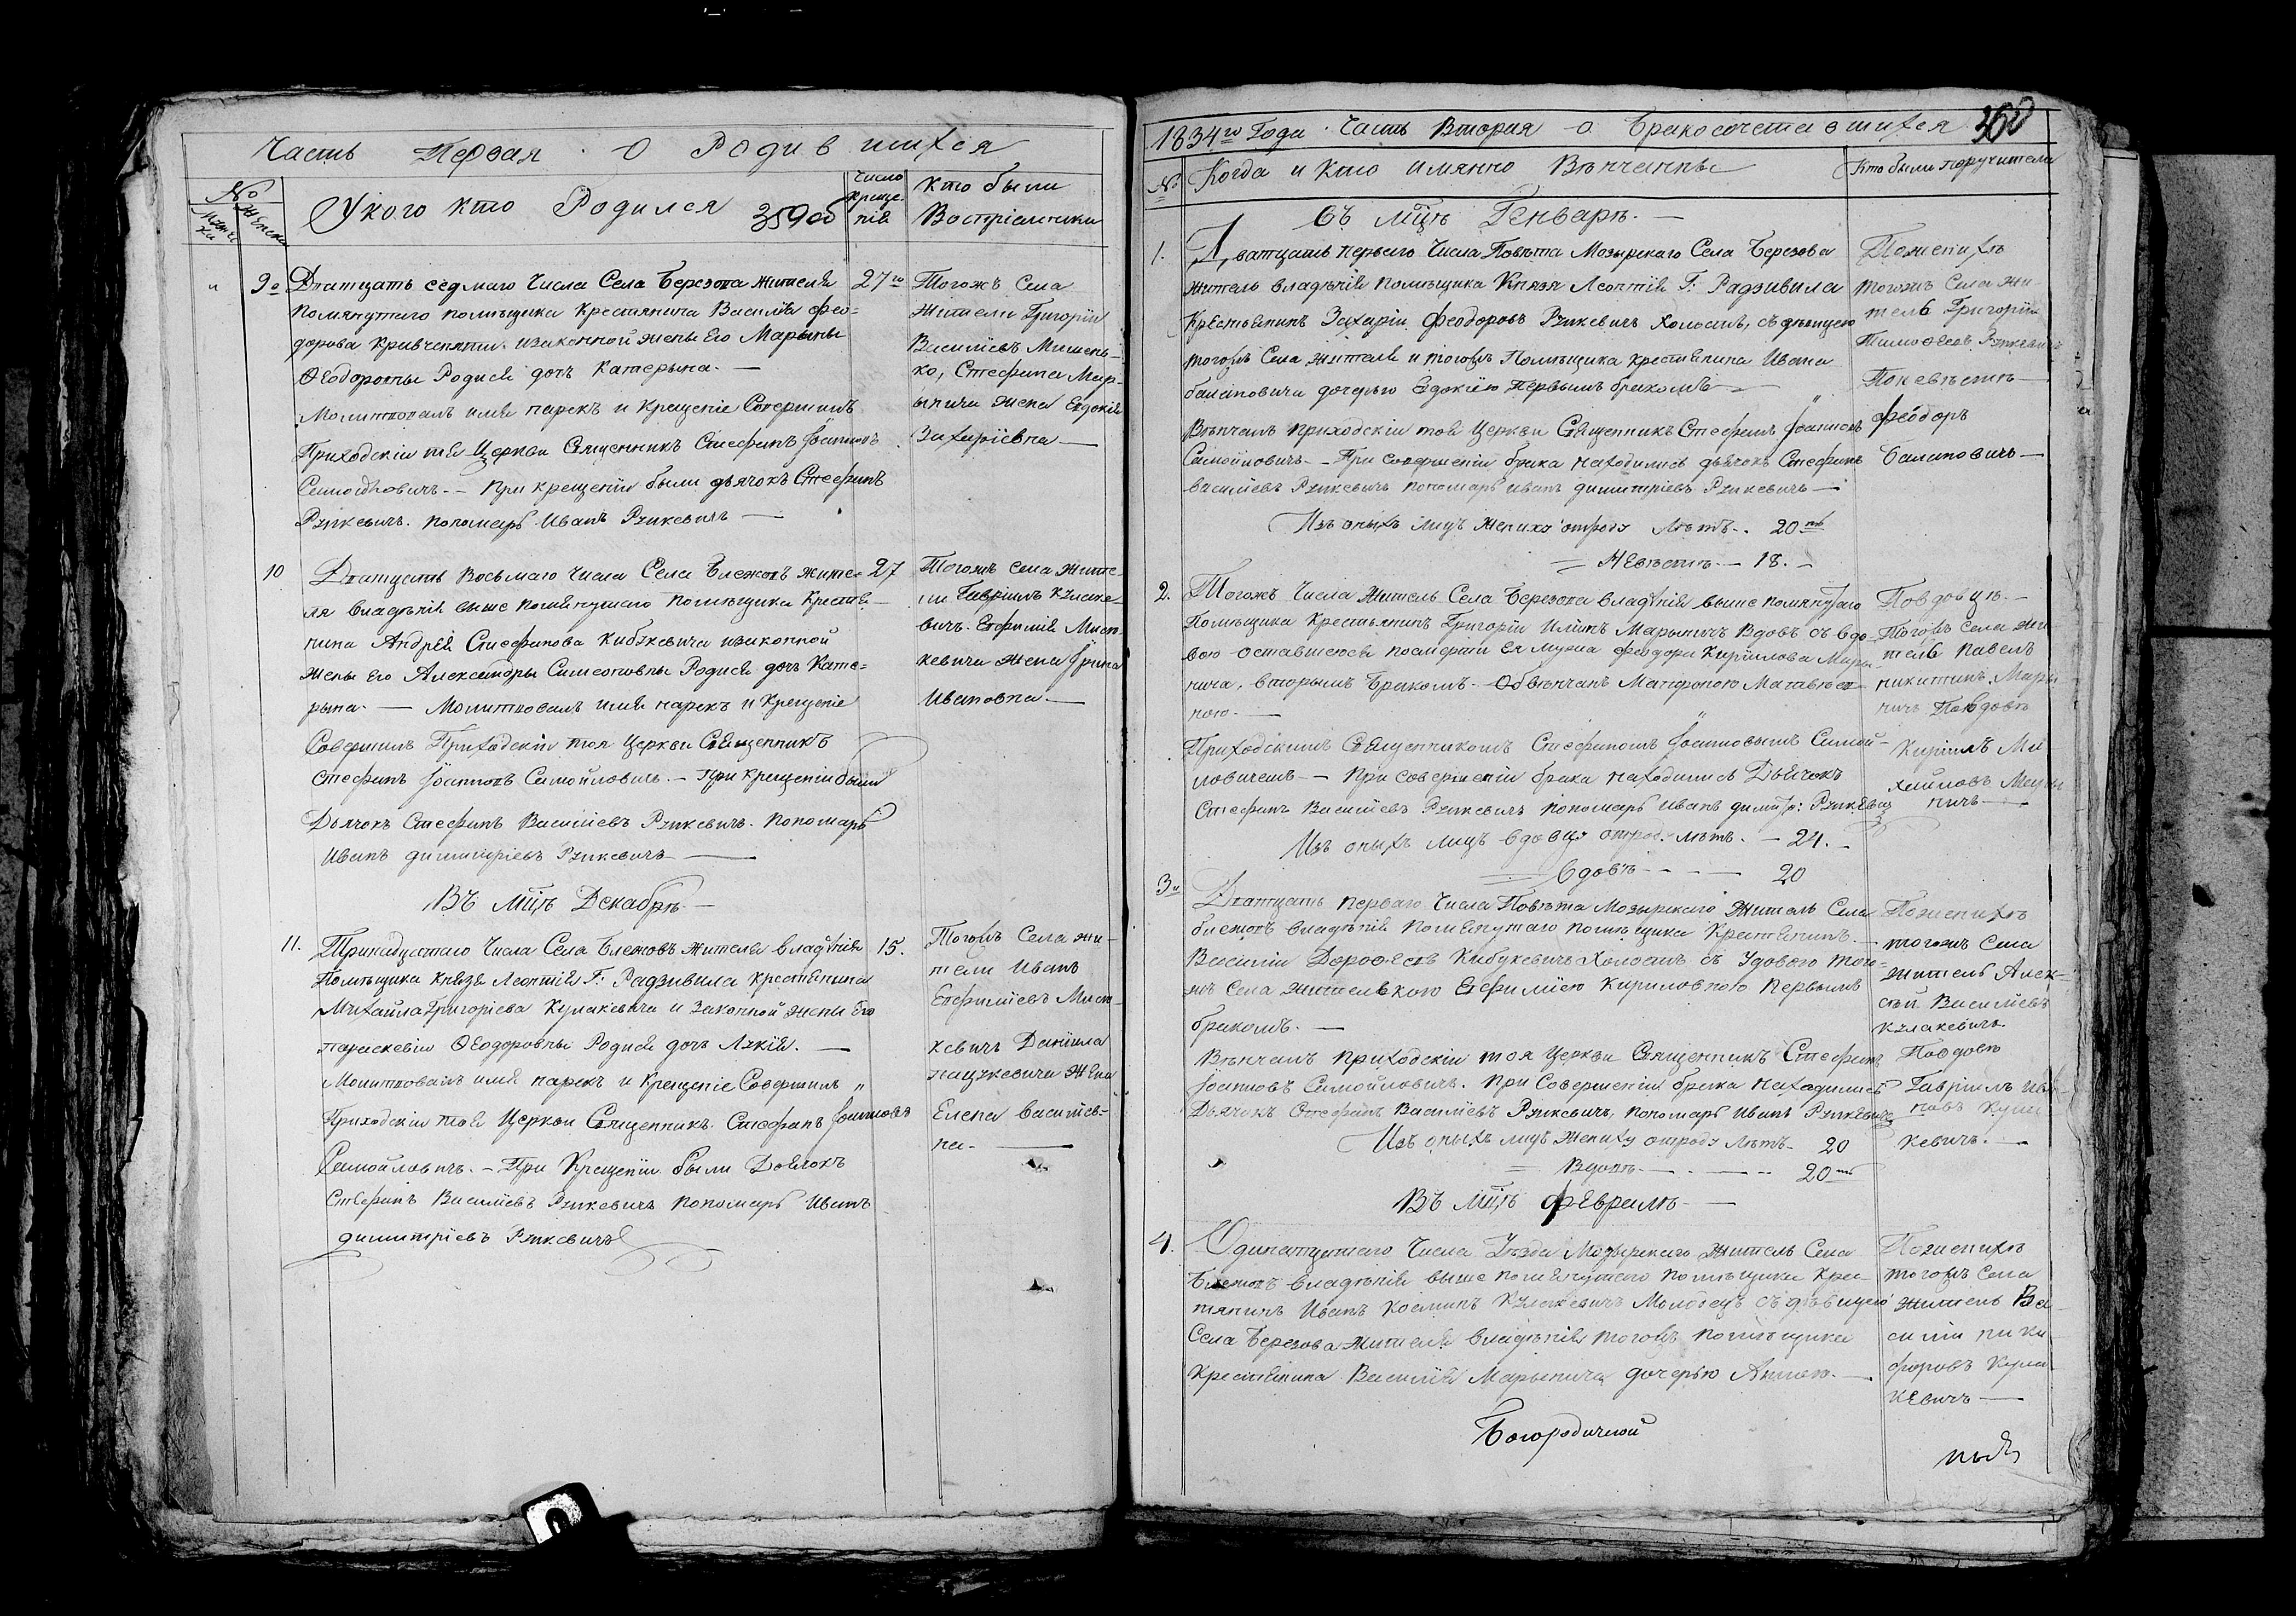 Часть Первая о Родившихся
№
Муже
ска
Женска
У кого кто Родился
359 об
число
креще
нія
кто были
Восприемники
9
Дватцать седмаго Числа Села Березова жителя
помянутаго помѣщика Крестянина Василія Фео-
дорова Кривченяти изаконной жены Его Марыны
Ѳеодоровны Родися дочь Катерына. —
Молитвовалъ имя нарекъ и Крещеніе Совершилъ
Приходскій тоя Церкви Священникъ Стефанъ Іоанновъ
Самойловичъ. — При крещеніи были дьячокъ Стефанъ
Рункевичъ. пономарь Иванъ Рункевичъ —
27го
Тогожъ Села
Жители Григорій
Василіевъ Мишень-
ко, Стефана Мар-
ынича жена Евдокія
Захаріевна —
10
Дватцать Восьмаго Числа Села Бежовъ жите-
ля владѣнія выше помянутаго помѣщика Крестя-
нина Андрея Стефанова Кибукевича изаконной
жены его Александры Симеоновны Родися дочь Кате-
рына. — Молитвовалъ имя нарекъ и Крещеніе
Совершилъ Приходскій тоя Церкви Священникъ
Стефанъ Іоанновъ Самойловичъ. — При крещеніи были
Дьячокъ Стефанъ Василіевъ Рункевичъ. Пономарь
Иванъ димитріевъ Рункевичъ —
27
Тогожъ села жите-
ли Гавріилъ Кулаке-
вичъ. Евфимія Мисю-
кевича жена Ірина
Ивановна. —
Въ мцѣ Декабрѣ —
11.
Тринадцятаго Числа Села Бежовъ жителя владѣнія
Помѣщика князя Леонтія Г: Радзивила крестянина
Михайла Григоріева Кулакевича и Законной жены Его
параскевіи Ѳеодоровны Родися дочь Лукія. —
Молитвовалъ имя нарекъ и Крещеніе Совершилъ
Приходскій тоя Церкви Священникъ Стефанъ Іоанновъ
Самойловичъ. — При Крещеніи были Дьячокъ
Стефанъ Василіевъ Рункевичъ пономарь Иванъ
димитріевъ Рункевичъ
15.
Тогожъ Села жи-
тели Иванъ
Евфиміевъ Мисю-
кевичъ Даніила
пацукевича жена
Елена Василіев-
на. —
1834го Года Часть Вторая о Бракосочетавшихся 360
№
Когда и кто имянно Вѣнчанны
Кто были поручители
Въ мцѣ Генварѣ. —
1.
Дватцать перваго Числа Повѣта Мозырскаго Села Березова
житель владѣнія помѣщика Князя Леонтія Г: Радзивила
Крестьянинъ Захарій Феодоровъ Рункевичъ холостъ, съ дѣвицею
тогожъ Села жителя и тогожъ Помѣщика крестянина Ивана
балановича дочерью Евдокіею первымъ бракомъ —
Вѣнчалъ приходскій той Церкви Священникъ Стефанъ Іоанновъ
Самойловичъ — При совершеніи брака находились дьячокъ Стефанъ
Василіевъ Рункевичъ пономарь иванъ димитріевъ Рункевичъ —
Изъ оныхъ лицъ жениху отроду лѣтъ. 20ть
= Невѣстѣ. — 18. —
Поженихѣ
тогожъ Села жи
тель Григорій
Тимоѳеевъ Рункевичъ
Поневѣстѣ —
феодоръ
Балановичъ —
2.
Тогожъ Числа житель Села Березова владѣнія выше помянутаго
Помѣщика Крестьянинъ Григорій Илiинъ Марыничъ Вдовъ съ вдо-
вою оставшеюся посмерти ея мужа феодора Кирилова Мары-
нича, вторымъ Бракомъ. Обвѣнчанъ Матроною Матвѣев-
ною. —
Приходскимъ Священникомъ Стефаномъ Іоанновымъ Самой-
ловичемъ — при совершеніи брака находились Дьячокъ
Стефанъ Василіевъ Рункевичъ пономарь Иванъ димитр: Рункевичъ
Изъ оныхъ лицъ вдовцу отрод. лѣтъ. — 24. —
= Вдовѣ — 20
Повдовцѣ. —
Тогожъ села жи
тель Павелъ
никитинъ Мары
ничъ Повдовѣ
Кирилъ Ми
хайловъ Мары
ничъ —
3й
Дватцать перваго Числа Повѣта Мозырскаго Житель Села
бежовъ владѣнія помянутаго помѣщика Крестянинъ. —
Василій Дорофеевъ Кибукевичъ Холостъ съ Удовою того-
жъ Села жителькою Евфиміею Кириловною первымъ
бракомъ. —
Вѣнчалъ приходскій тоя церкви Священникъ Стефанъ
Іоанновъ Самойловичъ. При Совершеніи брака находились
Дьячокъ Стефанъ Василіевъ Рункевичъ, пономарь Иванъ Рункевичъ
Изъ оныхъ лицъ жениху отроду лѣтъ. 20
= Вдовѣ — 20ть
Поженихѣ
тогожъ Села
житель Алек-
сѣй Василіевъ
Кулакевичъ.
Повдовѣ
Гавріилъ Ива-
новъ Кула
кевичъ. —
Въ мцѣ февралѣ —
4.
Одинатцятаго Числа Уѣзда Мозырскаго Житель Села
Бежовъ владѣнія выше помянутаго помѣщика Крес
тянинъ Иванъ Косминъ Кулакевичъ Молодецъ съ дѣвицею
Села Березова жителя владѣнія тогожъ помѣщика
крестянина Василія Марынича дочерью Анною. —
Поженихѣ
тогожъ Села
житель Ва
силій ники
форовъ Кула
кевичъ —
Богородичной